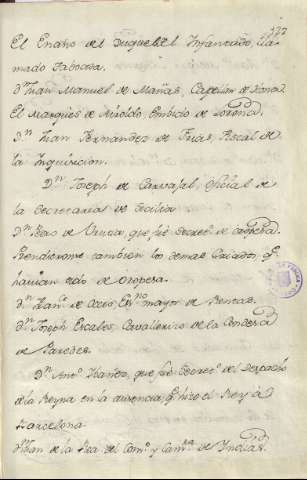 El Enano del Duque del Infantado, lla-
mado Taboada.
Dn Juan Manuel de Mañas, Capellan de honor.
El Marques de Miraldo, Embiado de Lorena.
Dn Juan Fernandez de Frias, Fiscal de
la Inquisicion.
Dn Joseph de Carvajal, oficial de
la Secretaria de Sicilia
Dn Blas de Urueta, que fue Secretº de
Prendieronse tambien los demas Criados, q
havian sido de Oropesa.
Dn Franco de Otero, Esno mayor de Rentas.
Dn Joseph Escales, Cavallerizo de la Condesa
de Paredes.
Dn Antº Ibañez, que fue Secretº del Despacho
de la Reyna en la ausencia, q hizo el Rey à
Barcelona
Dn Juan de la Rea, del Conso y Camra de Indias.